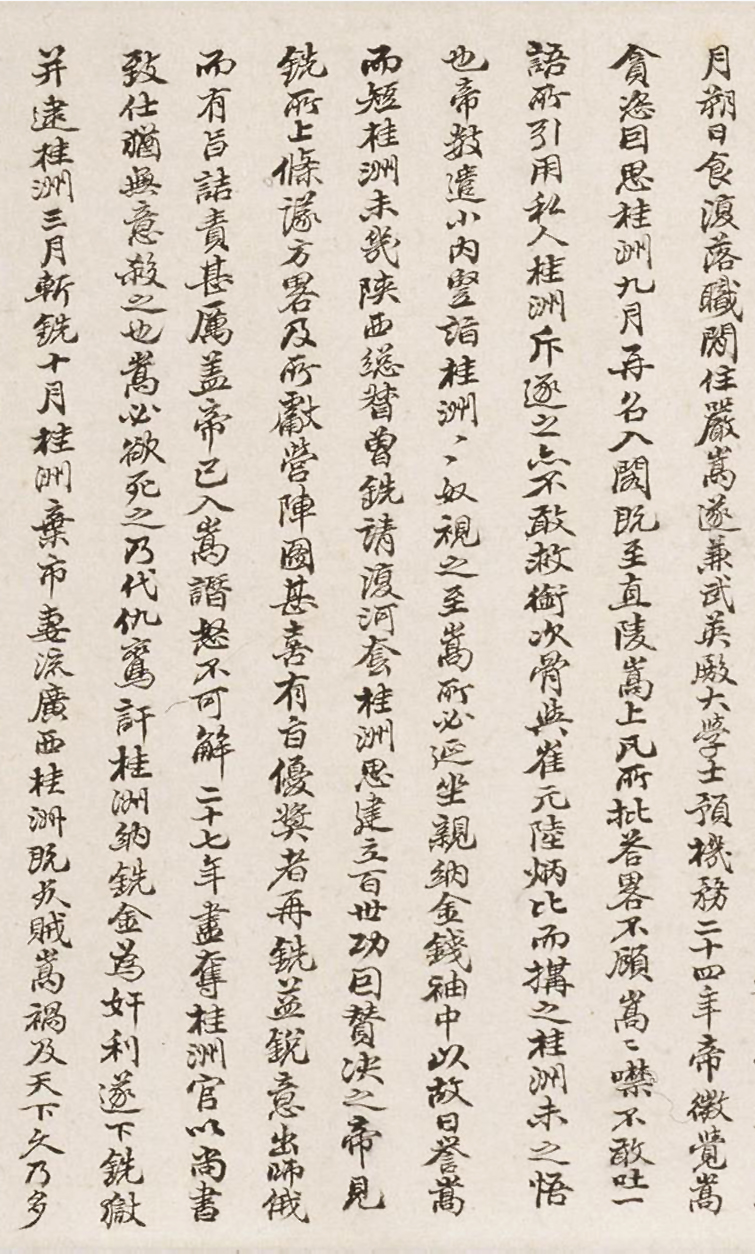 月朔日食復落職閒住嚴嵩遂兼武英殿大學士預機務二十四年帝微覺嵩
貪恣因思桂洲九月再召入閣既至直陵嵩上凡所批答畧不顧嵩〻噤不敢吐一
語所引用私人桂洲斥逐之亦不敢救銜次骨與崔元陸炳比而搆之桂洲未之悟
也帝數遣小內豎詣桂洲〻奴視之至嵩所必延坐親納金錢袖中以故日譽嵩
而短桂洲未幾陝西總督曾銑請復河套桂洲思建立百世功因贊决之帝見
銑所上條議方畧及所獻營陣圖甚喜有旨優獎者再銑益銳意出師俄
而有旨詰責甚厲盖帝已入嵩譖怒不可解二十七年盡奪桂洲官以尚書
致仕猶無意殺之也嵩必欲死之乃代仇鸞訐桂洲納銑金為奸利遂下銑獄
并逮桂洲三月斬銑十月桂洲棄市妻流廣西桂洲既死賊嵩禍及天下久乃多